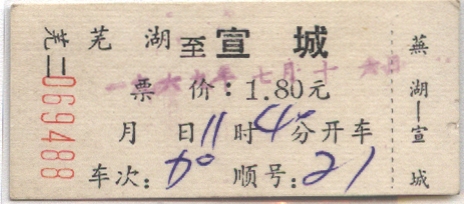 芜湖至宣城
一九六九年七月十六日
票价:1.80元
月 日11时40分开车
车次:60 顺号:21
芜二
069488
蕪湖—宣城